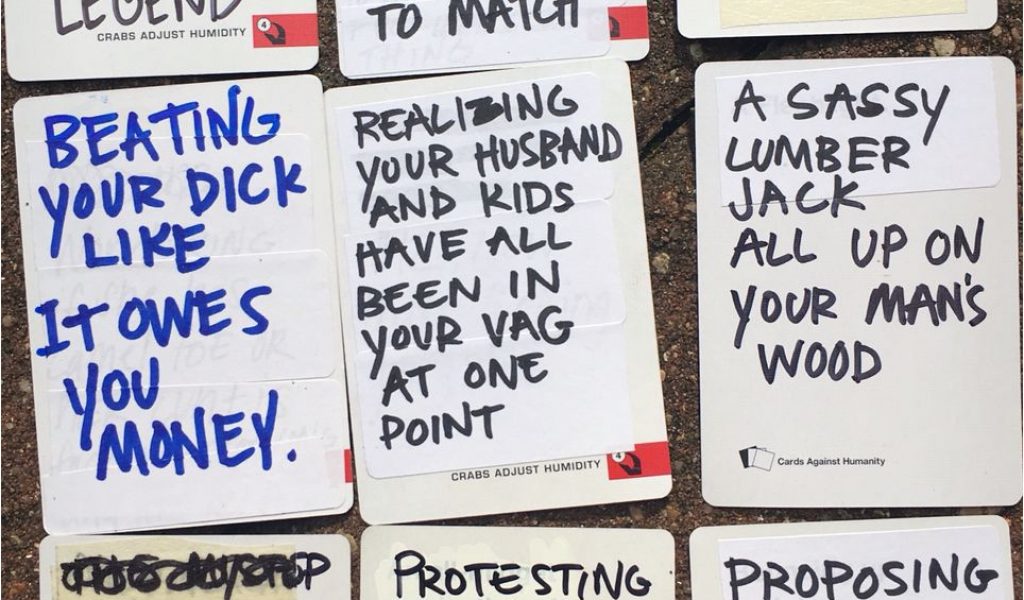 LEGEND
CRABS ADJUST HUMIDITY
4
TO MATCH
BEATING
YOUR DICK
LIKE
It OWES
YOU
MONEY.
REALIZING
YOUR HUSBAND
AND KIDS
HAVE ALL
BEEN IN
YOUR VAG
AT ONE
POINT
CRABS ADJUST HUMIDITY
4
A SASSY
LUMBER
JACK
ALL UP ON
YOUR MAN'S
WOOD
Cards Against Humanity
PROTESTING
PROPOSING